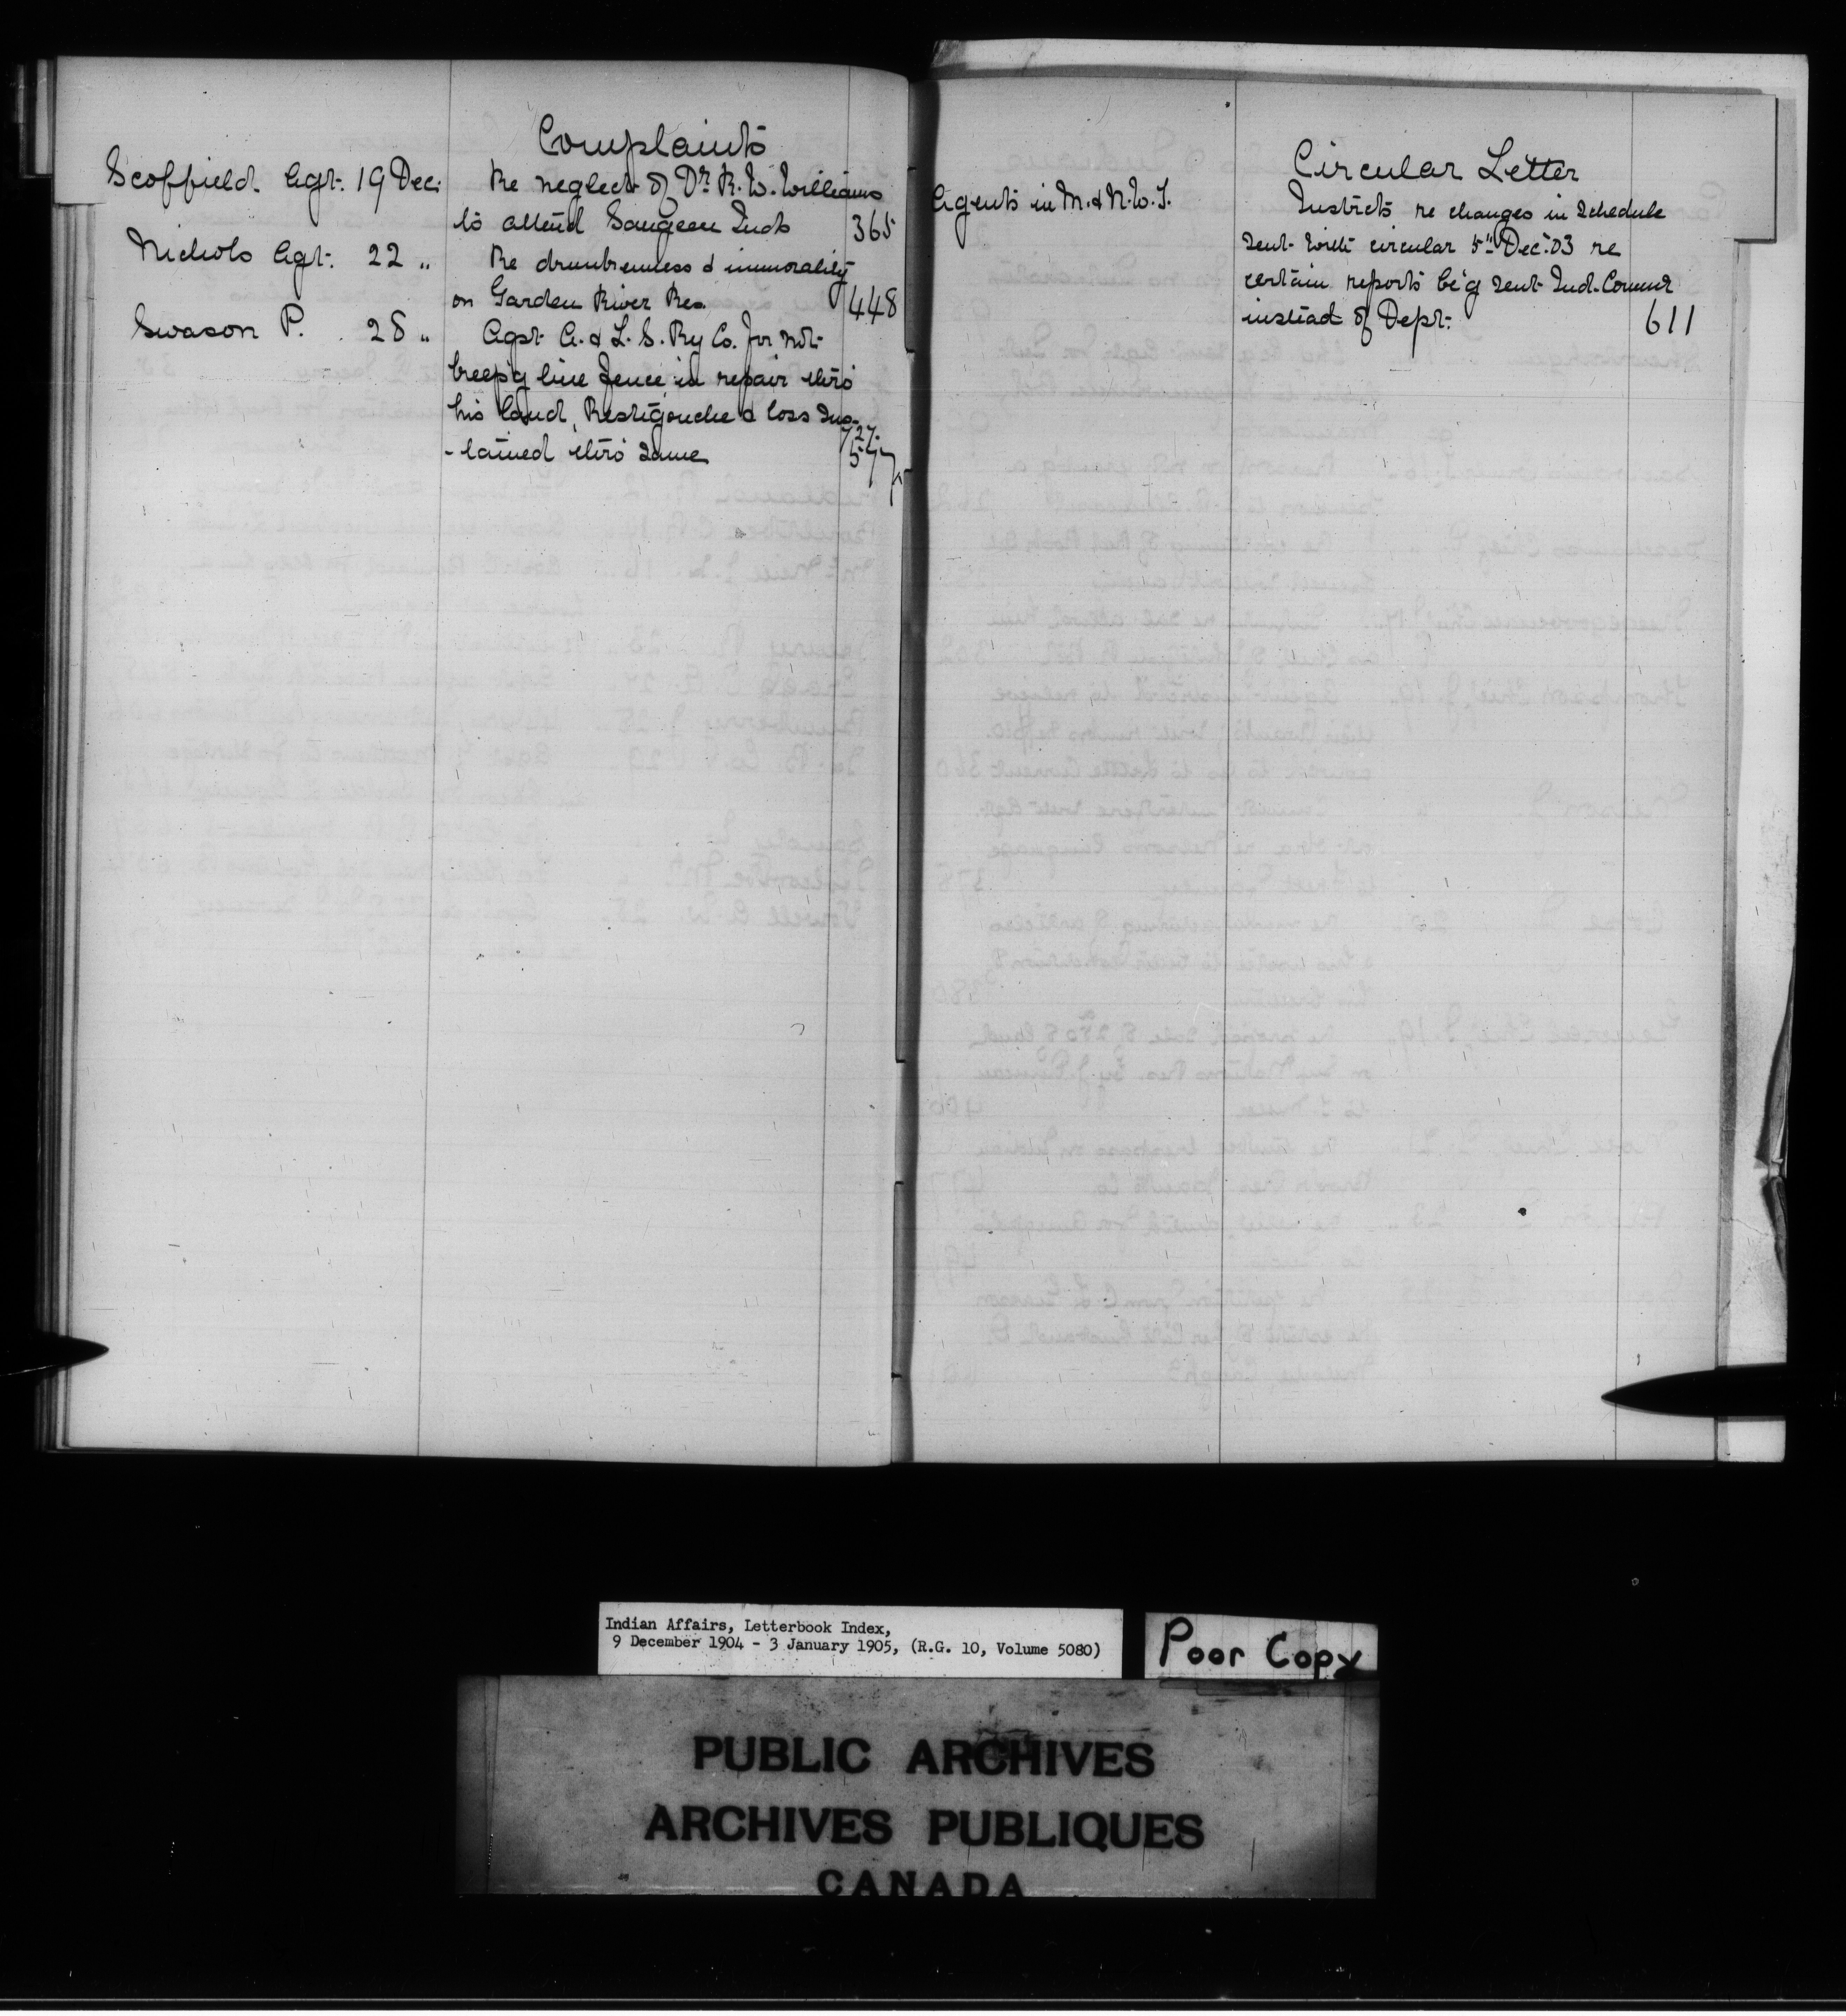 Complaints
Scoffield Agt. 19 Dec. Re neglect of Dr. R. W. Williams
to attend Saugeen Inds 365
Nichols Agt. 22 " Re drunkenness & immorality
on Garden River Res. 448
Swason P. 28 " Agst A. & L. S. Ry Co. for not
keep'g line fence in repair thro'
his land, Restigouche & loss sus-
-tained thro' same 577
Circular Letter
Agents in M. & N.W.T. Instrcts re changes in schedule
sent with circular 5" Dec. 03 re
certain reports be'g sent Ind. Commr
instead of Dept. 611
Indian Affairs, Letterbook Index,
9 December 1904 - 3 January 1905, (R.G. 10, Volume 5080)
Poor Copy
PUBLIC ARCHIVES
ARCHIVES PUBLIQUES
CANADA